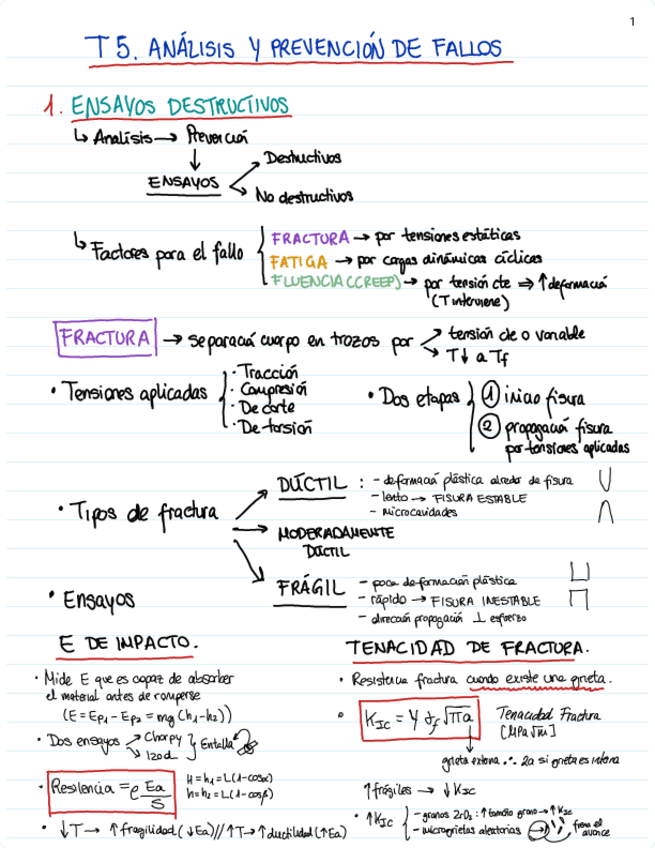 1
T5. ANÁLISIS Y PREVENCIÓN DE FALLOS
1. ENSAYOS DESTRUCTIVOS
↳ Análisis → Prevención
↓
ENSAYOS
Destructivos
No destructivos
↳ Factores para el fallo
FRACTURA → por tensiones estáticas
FATIGA → por cargas dinámicas cíclicas
FLUENCIA (CREEP) → por tensión cte ⇒ ↑ deformación
(T interviene)
FRACTURA → separación cuerpo en trozos por
tensión cte o variable
T↓ a Tf
· Tensiones aplicadas
· Tracción
· Compresión
· De corte
· De torsión
· Dos etapas
① inicio fisura
② propagación fisura
por tensiones aplicadas
· Tipos de fractura
DÚCTIL : - deformación plástica alreded de fisura
- lento → FISURA ESTABLE
- microcavidades
MODERADAMENTE
DÚCTIL
FRÁGIL
- poca deformación plástica
- rápido → FISURA INESTABLE
- dirección propagación ⊥ esfuerzo
· Ensayos
E DE IMPACTO.
· Mide E que es capaz de absorber
el material antes de romperse
(E = Ep₁ - Ep₂ = mg (h₁-h₂))
· Dos ensayos
Charpy
Izod
Entalla
· Resilencia = e Ea/S
H = h₁ = L(1-cosα)
h = h₂ = L(1-cosβ)
· ↓T → ↑ fragilidad (↓Ea) // ↑T → ↑ ductilidad (↑Ea)
TENACIDAD DE FRACTURA.
· Resistencia fractura cuando existe una grieta.
KIC = Y σf √πa
Tenacidad Fractura
[MPa√m]
grieta externa ∴ 2a si grieta es interna
↑ frágiles → ↓ KIC
· ↑ KIC
- granos ZrO₂ : ↑ tamaño grano → ↑ KIC
- microgrietas aleatorias
frena el
avance